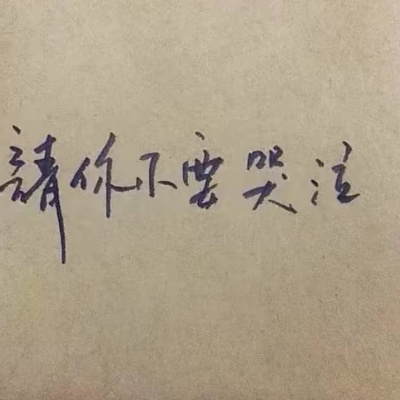 請你不要哭泣